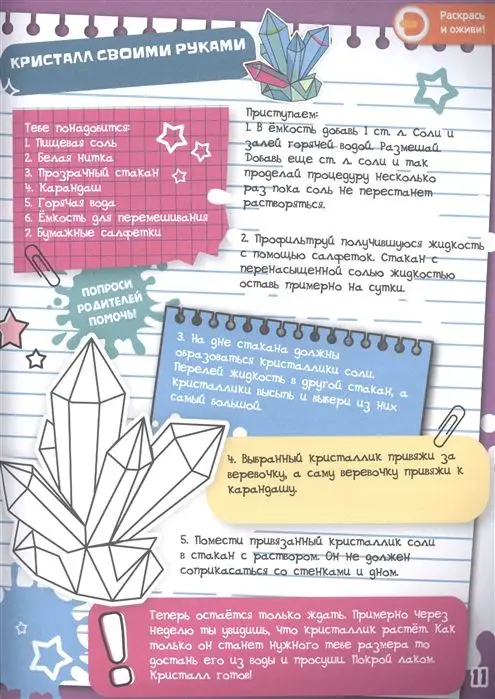 Раскрась
и оживи!
КРИСТАЛЛ СВОИМИ РУКАМИ
Тебе понадобится:
1. Пищевая соль
2. Белая нитка
3. Прозрачный стакан
4. Карандаш
5. Горячая вода
6. Ёмкость для перемешивания
7. Бумажные салфетки
ПОПРОСИ
РОДИТЕЛЕЙ
ПОМОЧЬ!
Приступаем:
1. В ёмкость добавь 1 ст. л. Соли и
залей горячей водой. Размешай.
Добавь еще ст. л. соли и так
проделай процедуру несколько
раз пока соль не перестанет
растворяться.
2. Профильтруй получившуюся жидкость
с помощью салфеток. Стакан с
перенасыщенной солью жидкостью
оставь примерно на сутки.
3. На дне стакана должны
образоваться кристаллики соли.
Перелей жидкость в другой стакан, а
кристаллики высыпь и выбери из них
самый большой.
4. Выбранный кристаллик привяжи за
веревочку, а саму веревочку привяжи к
карандашу.
5. Помести привязанный кристаллик соли
в стакан с раствором. Он не должен
соприкасаться со стенками и дном.
Теперь остаётся только ждать. Примерно через
неделю ты увидишь, что кристаллик растёт. Как
только он станет нужного тебе размера то
достань его из воды и просуши. Покрой лаком.
Кристалл готов!
11